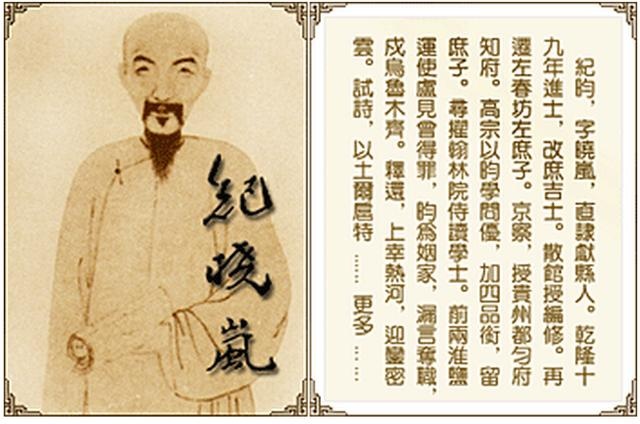 紀曉嵐
紀昀，字曉嵐，直隸獻縣人。乾隆十
九年進士，改庶吉士。散館授編修。再
遷左春坊左庶子。京察，授貴州都勻府
知府。高宗以昀學問優，加四品銜，留
庶子。尋擢翰林院侍讀學士。前兩淮鹽
運使盧見曾得罪，昀爲姻家，漏言奪職，
戍烏魯木齊。釋還，上幸熱河，迎鑾密
雲。試詩，以土爾扈特 …… 更多 ……